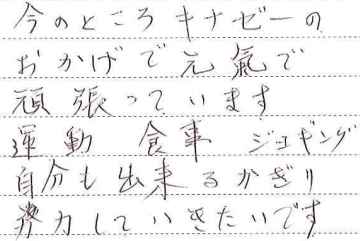 今のところキナゼーの
おかげで元氣で
頑張っています
運動 食事 ジョギング
自分も出来るかぎり
努力していきたいです